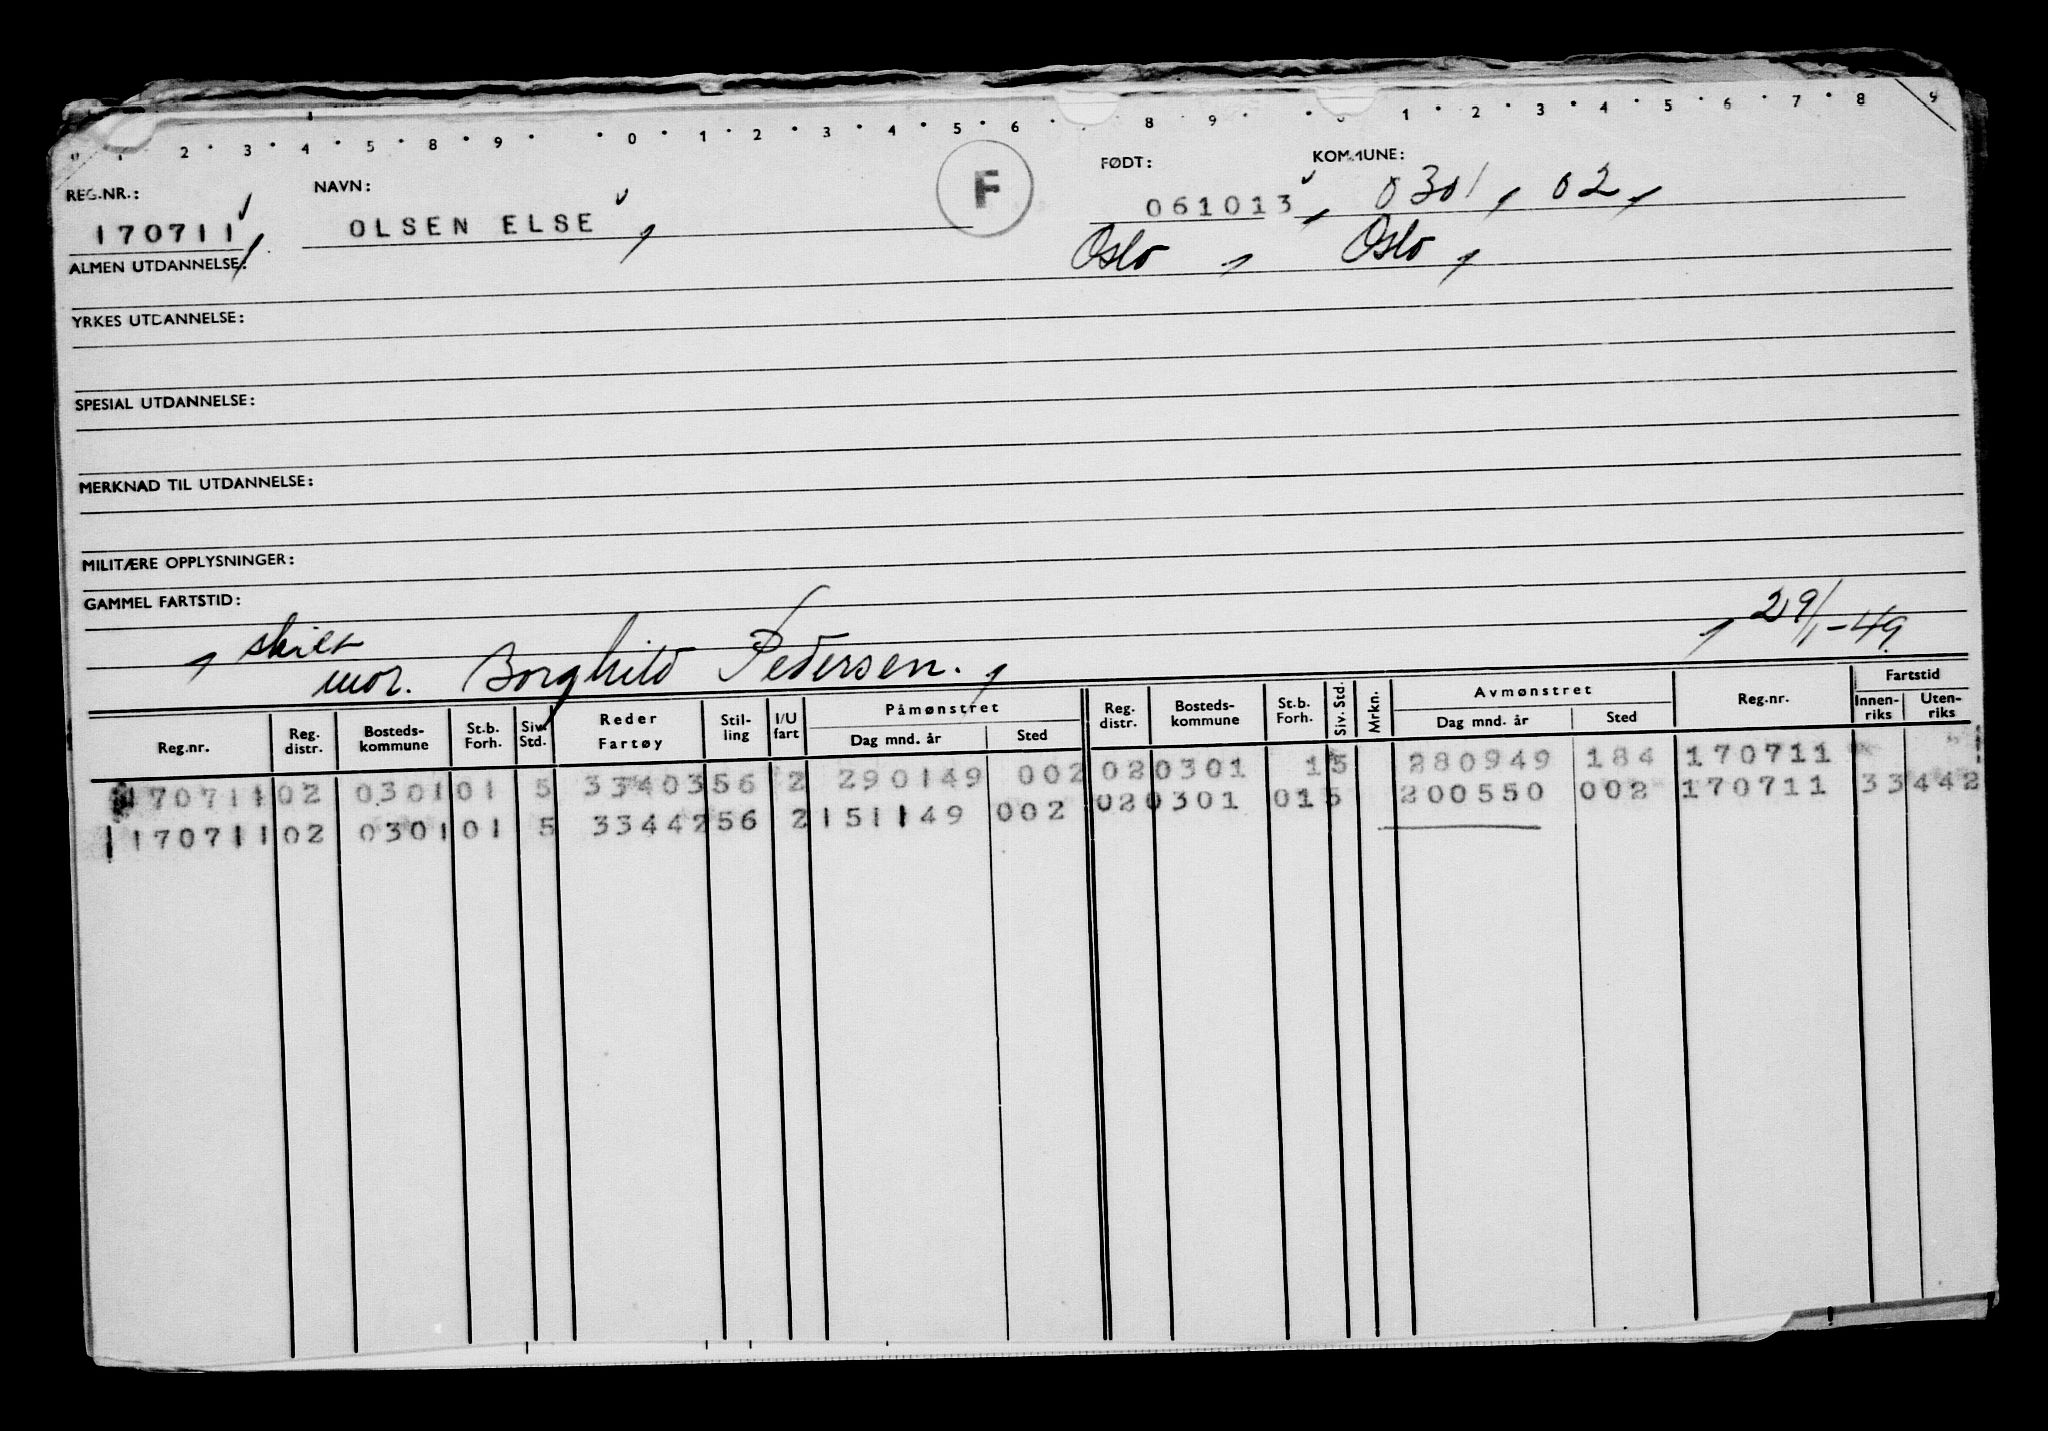 2 · 3 · 4 · 5 · 8 · 9 · · 0 · 1 · 2 · 3 · 4 · 5 · 6 · 8 · 9 · · 1 · 2 · 3 · 4 · 5 · 6 · 7 · 8 9
REG.NR.: NAVN: F FØDT: KOMMUNE:
170711, OLSEN ELSE, 061013, 0301, 02,
Oslo, Oslo,
ALMEN UTDANNELSE:
YRKES UTDANNELSE:
SPESIAL UTDANNELSE:
MERKNAD TIL UTDANNELSE:
MILITÆRE OPPLYSNINGER:
GAMMEL FARTSTID:
, skilt , 29/1-49
mor. Borghild Pedersen. ,
Reg.nr. Reg. distr. Bosteds-kommune St.b. Forh. Siv. Std. Reder Fartøy Stil-ling I/U fart Påmønstret Dag mnd. år Sted Reg. distr. Bosteds-kommune St.b. Forh. Siv. Std. Mrkn. Avmønstret Dag mnd. år Sted Reg.nr. Fartstid Innen-riks Uten-riks
170711 02 0301 01 5 33403 56 2 290149 002 02 0301 1 5 280949 184 170711
170711 02 0301 01 5 33442 56 2 151149 002 02 0301 01 5 200550 002 170711 33 442